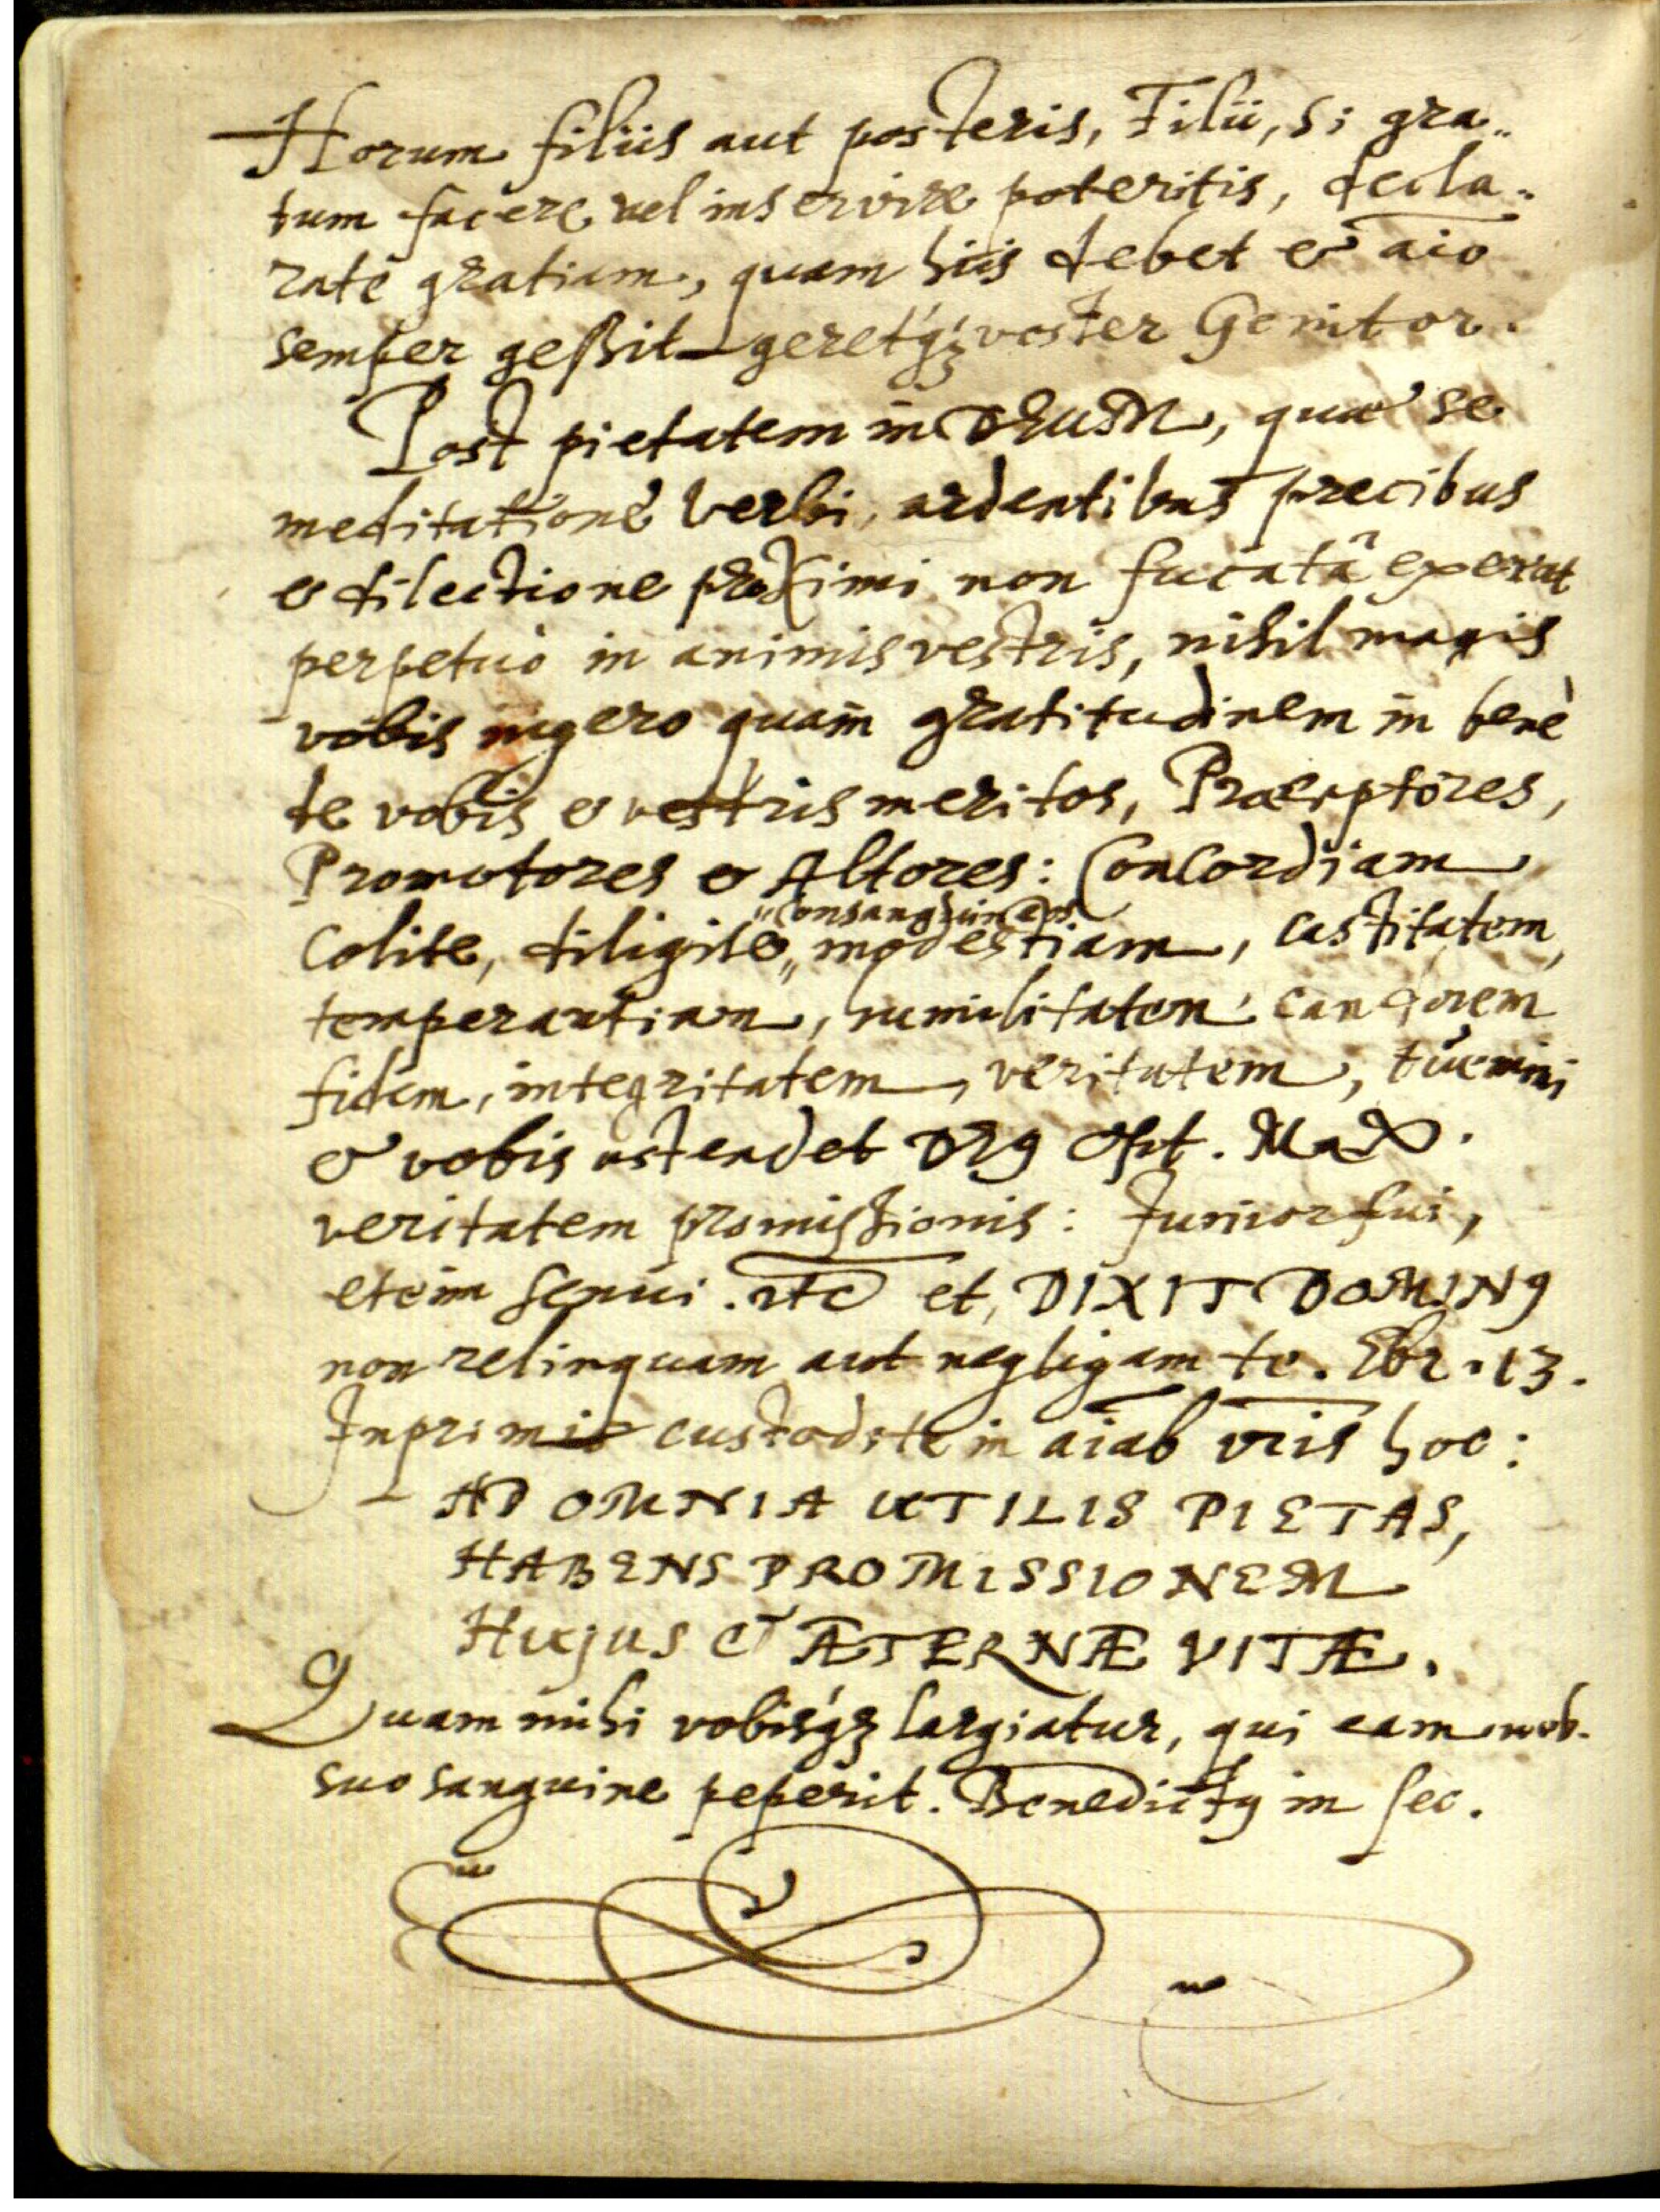 Horum filiis aut posteris, Filii, si gra„
tum facere vel inservire poteritis, decla„
rate gratiam, quam hiis debet & aĩo
semper geßit geretq́ꝫ vester Genitor.
Post pietatem in DEUM, quae se
meditatione Verbi, ardentibus precibus
& dilectione proximi non fucatâ exerat
perpetuò in animis vestris, nihil magis
vobis ingero quam gratitudinem in benè
de vobis & vestris meritos, Praeceptores,
Promotores & Altores: Concordiam
„Consanguineos.
Colite, diligite„ modestiam, castitatem,
temperantiam, humilitatem, candorem
fidem, integritatem, veritatem, tuemini
& vobis ostendet DEꝰ Opt. Max.
veritatem promissionis: Junior fui,
etenim senui. etc et, DIXIT DOMINꝰ
non relinquam aut negligam te. Ebr. 13.
Inprimis custodite in aĩab vr̃is hoc:
AD OMNIA UTILIS PIETAS,
HABENS PROMISSIONEM
HUJUS ET ÆTERNÆ VITÆ.
Quam mihi vobisq́ꝫ largiatur, qui eam nob.
suo sanguine peperit. Benedictꝰ in sec.